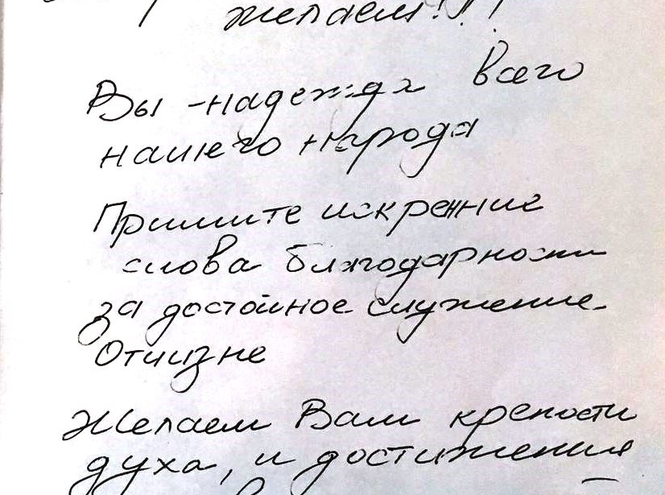 желаем!!!
Вы - надежда всего
нашего народа
Примите искренние
слова благодарности
за достойное служение
Отчизне
Желаем Вам крепости
духа, и достижения